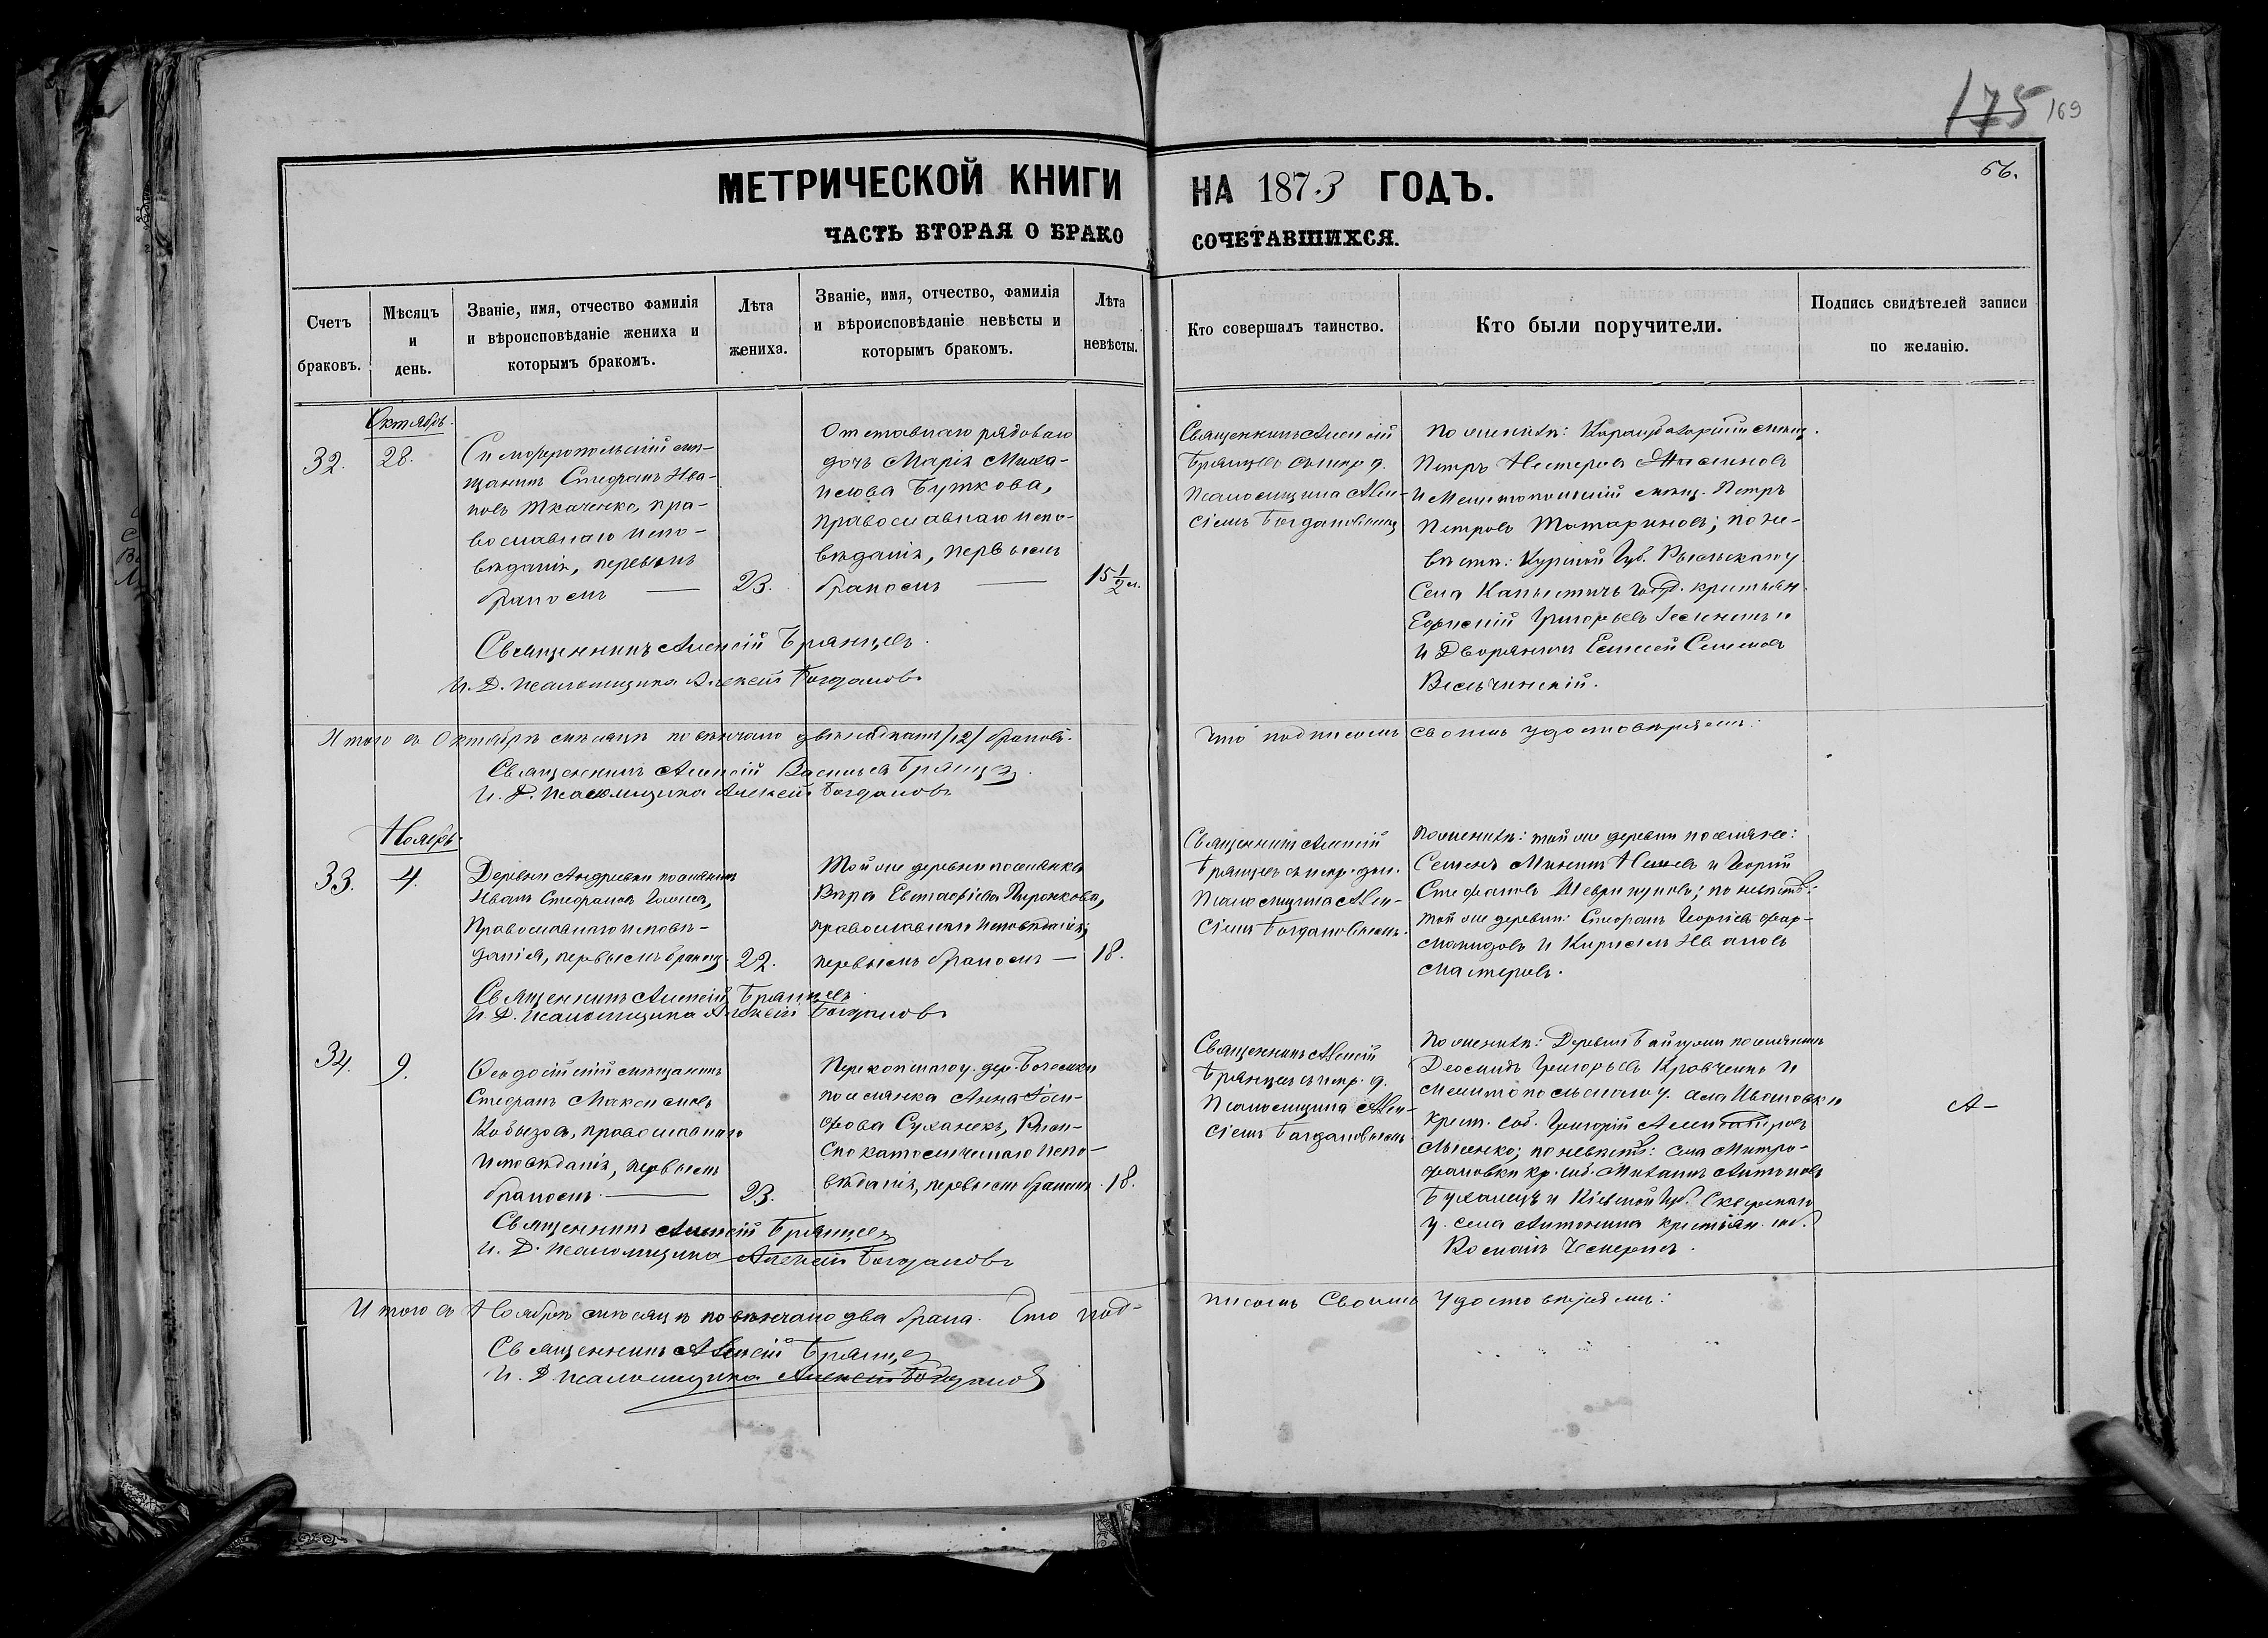 175 169
56.
МЕТРИЧЕСКОЙ КНИГИ НА 1873 ГОДЪ.
ЧАСТЬ ВТОРАЯ О БРАКОСОЧЕТАВШИХСЯ.
Счетъ браковъ.
Мѣсяцъ и день.
Званіе, имя, отчество фамилія
и вѣроисповѣданіе жениха и
которымъ бракомъ.
Лѣта
жениха.
Званіе, имя, отчество, фамилія
и вѣроисповѣданіе невѣсты и
которымъ бракомъ.
Лѣта
невѣсты.
Кто совершалъ таинство.
Кто были поручители.
Подпись свидѣтелей записи
по желанію.
Октябрь.
32.
28.
Симферопольскій мѣ-
щанинъ Стефанъ Ива-
новъ Ткаченко, пра-
вославнаго испо-
вѣданія, первымъ
бракомъ
23.
Отставнаго рядоваго
дочь Марія Миха-
илова Буткова,
православнаго испо-
вѣданія, первымъ
бракомъ
15 1/2 л.
Священникъ Алексій
Брянцевъ съ испр. д.
Псаломщика Алек-
сіемъ Богдановымъ
По женихѣ: Карасубазарскій мѣщ.
Петръ Нестеровъ
и Мелитопольскій мѣщ. Петръ
Петровъ Татариновъ; по не-
вѣстѣ: Курской Губ. Рыльскаго у.
Села Капыстичъ Госуд. крестьян.
Григорьевъ
и Дворянинъ Семеновъ
Священникъ Алексій Брянцевъ.
И. Д. псаломщика Алексѣй Богдановъ
Итого въ Октябрѣ мѣсяцѣ повѣнчано двѣнадцать /12/ браковъ.
Что подписомъ своимъ удостовѣряемъ:
Священникъ Алексій Васильевъ Брянцевъ.
И. Д. псаломщика Алексѣй Богдановъ
Ноябрь.
33.
4.
Деревни Андреевки поселянинъ
Иванъ Стефановъ
Православнаго исповѣ-
данія, первымъ бракомъ
22.
Той же деревни поселянка
Вѣра Евстафіева Пиронкова,
православнаго исповѣданія,
первымъ бракомъ
18.
Священникъ Алексій
Брянцевъ съ испр. дол.
Псаломщика Алек-
сіемъ Богдановымъ.
По женихѣ: той же деревни поселяне:
Семенъ и Георгій
Стефановъ; по невѣстѣ:
той же деревни: Стефанъ Георгіевъ
и Кириллъ Ивановъ
Мастеровъ.
Священникъ Алексій Брянцевъ
И. Д. псаломщика Алексѣй Богдановъ
34.
9.
Ѳеодосійскій мѣщанинъ
Стефанъ Максимовъ
Кобызовъ, православнаго
исповѣданія, первымъ
бракомъ.
23.
Перекопскаго у. дер.
поселянка Анна Іоси-
фова Суханекъ, Рим-
ско католическаго испо-
вѣданія, первымъ бракомъ.
18.
Священникъ Алексій
Брянцевъ съ испр. д.
Псаломщика Алек-
сіемъ Богдановымъ.
По женихѣ: Деревни поселянинъ
Григорьевъ Кравченко и
Мелитопольскаго у. села Ивановки
крест. соб. Григорій
по невѣстѣ: села Митро-
фановки кр. соб. Михаилъ Антоновъ
и Кіевской Губ. Сквирскаго
у. села Антонина крестьян. соб.
А-
Священникъ Алексій Брянцевъ
И. Д. псаломщика Алексѣй Богдановъ
Итого въ Ноябрѣ мѣсяцѣ повѣнчано два брака. Что под-
писомъ Своимъ Удостовѣряемъ:
Священникъ Алексій Брянцевъ
И. Д. псаломщика Алексѣй Богдановъ